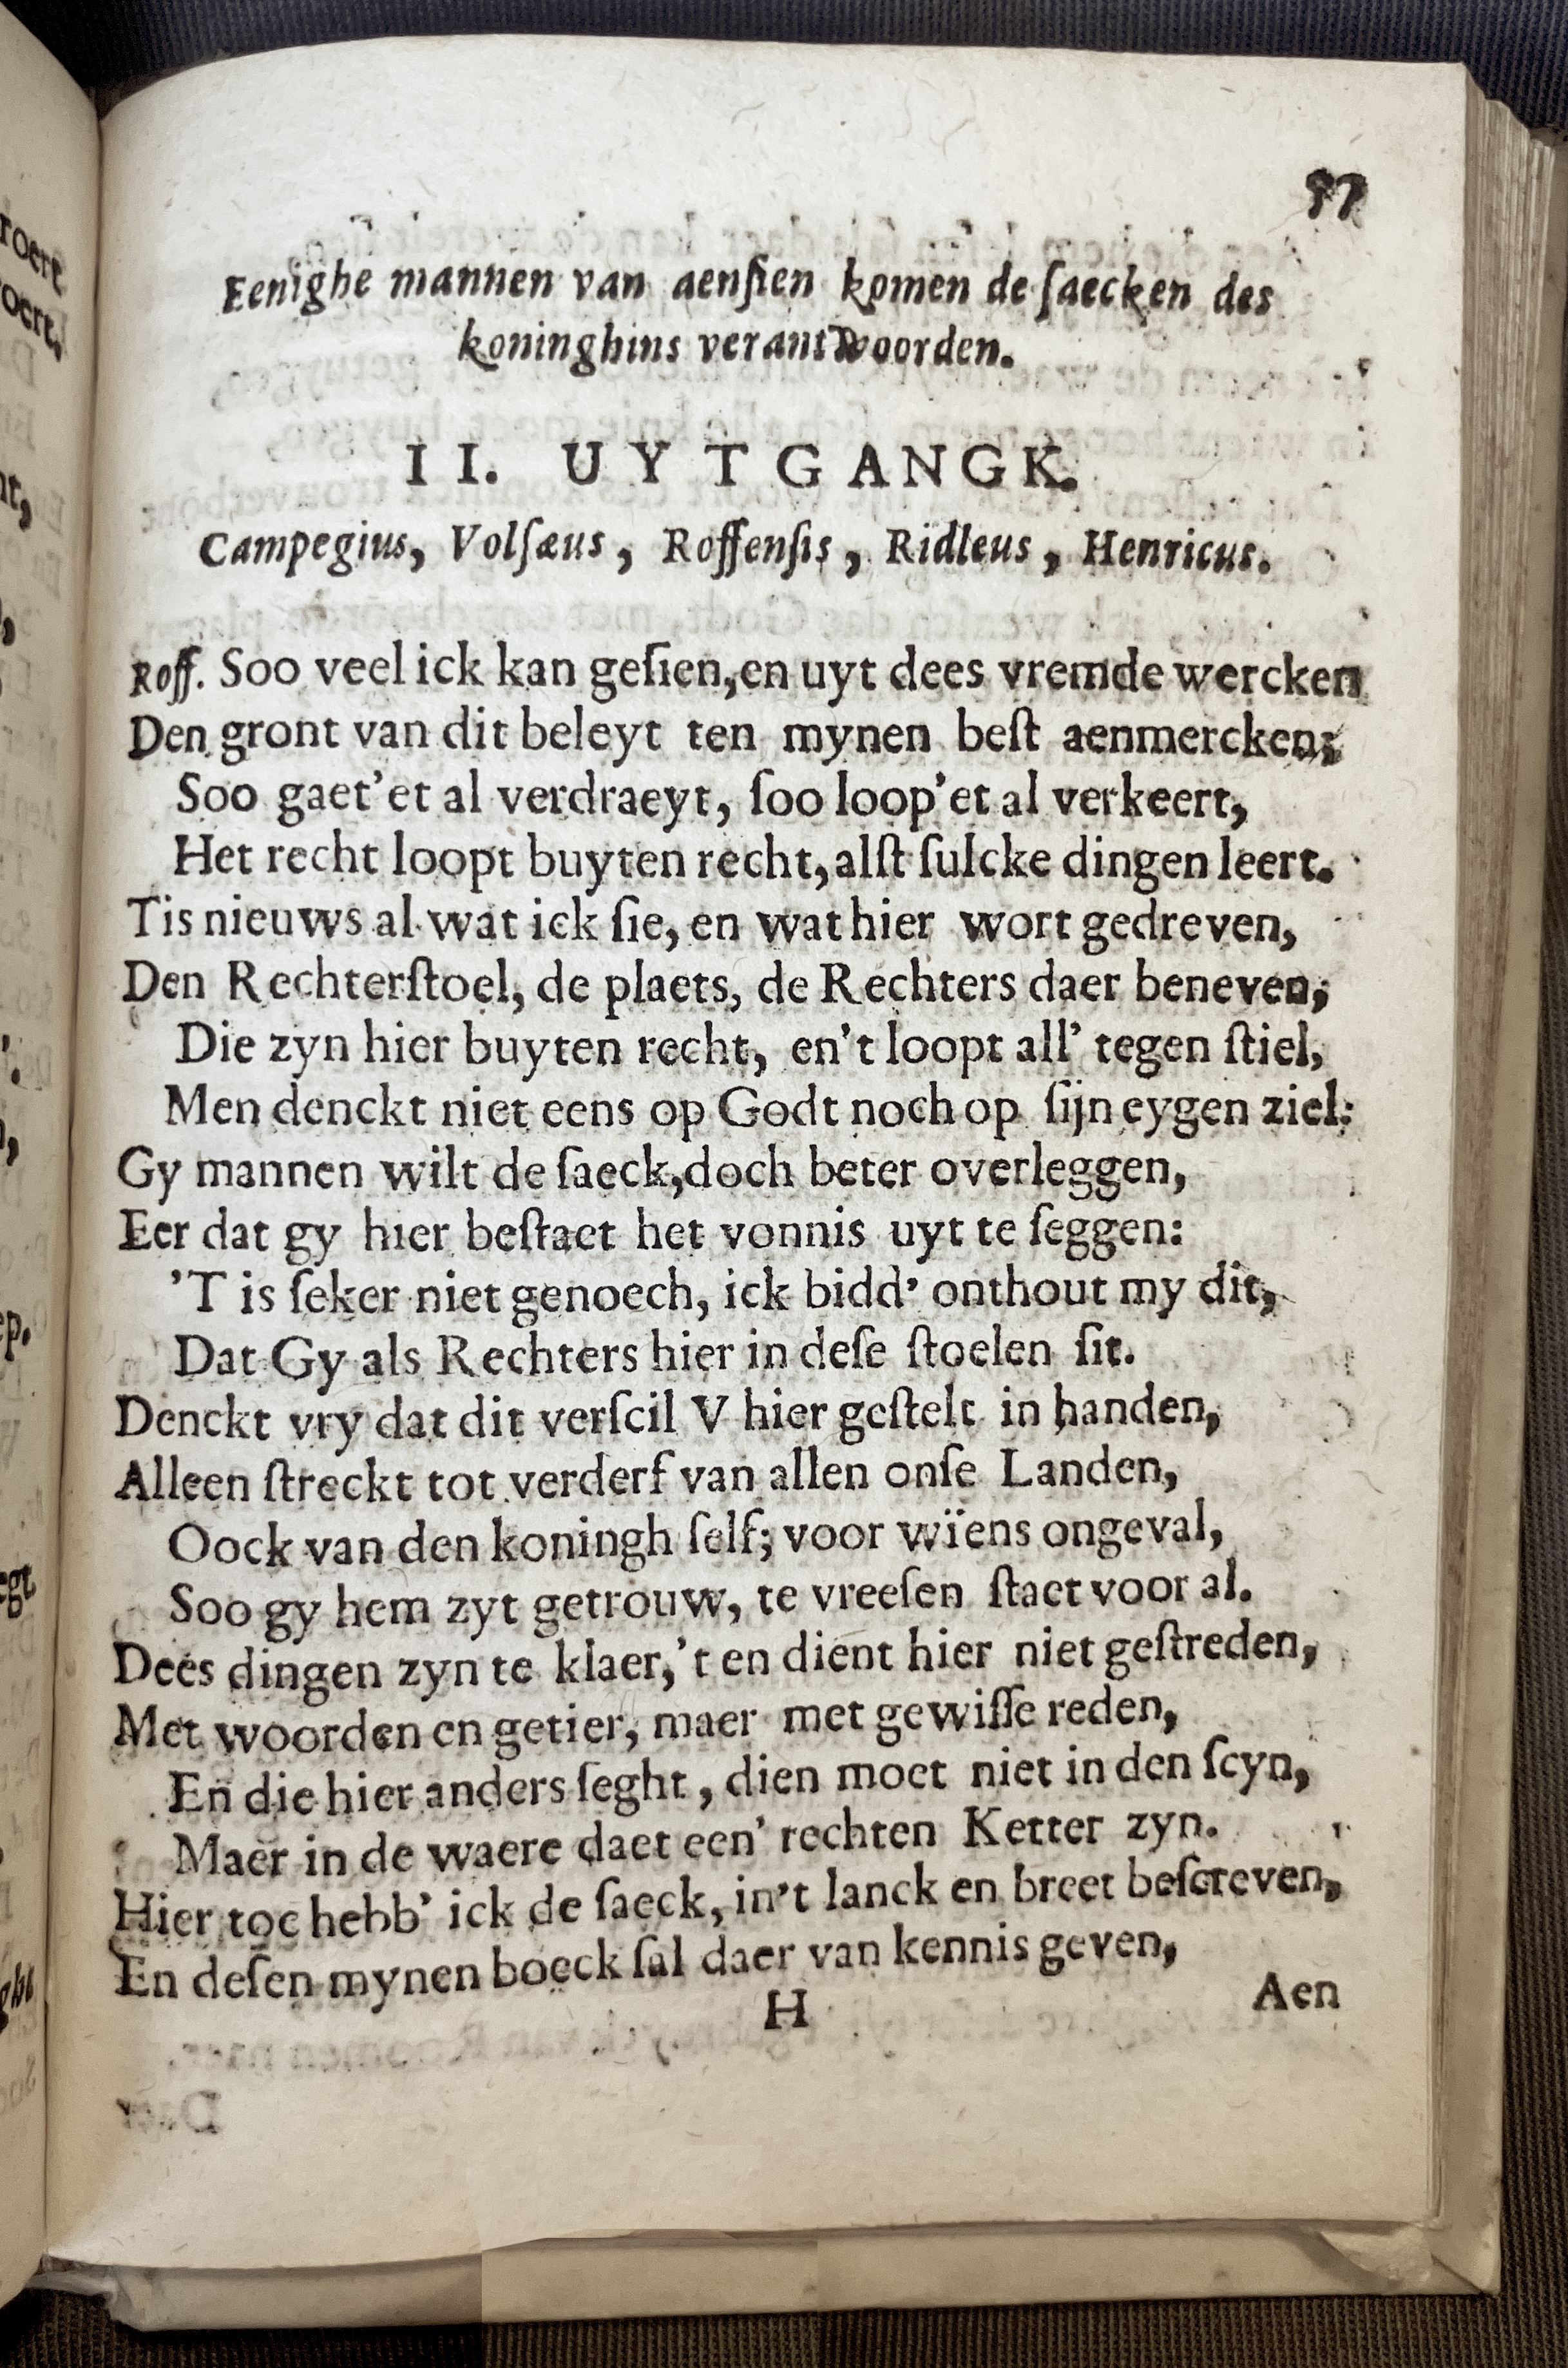 57
Eenighe mannen van aenſien komen de ſaecken des
koninghins verantwoorden.
II. UYTGANGK.
Campegius, Volſæus, Roffenſis, Ridleus, Henricus.
Roff. Soo veel ick kan geſien, en uyt dees vremde wercken
Den gront van dit beleyt ten mynen beſt aenmercken;
Soo gaet'et al verdraeyt, ſoo loop'et al verkeert,
Het recht loopt buyten recht, alſt ſulcke dingen leert.
Tis nieuws al wat ick ſie, en wat hier wort gedreven,
Den Rechterſtoel, de plaets, de Rechters daer beneven;
Die zyn hier buyten recht, en't loopt all' tegen ſtiel,
Men denckt niet eens op Godt noch op ſijn eygen ziel:
Gy mannen wilt de ſaeck, doch beter overleggen,
Eer dat gy hier beſtaet het vonnis uyt te ſeggen:
'T is ſeker niet genoech, ick bidd' onthout my dit,
Dat Gy als Rechters hier in deſe ſtoelen ſit.
Denckt vry dat dit verſcil V hier geſtelt in handen,
Alleen ſtreckt tot verderf van allen onſe Landen,
Oock van den koningh ſelf; voor wïens ongeval,
Soo gy hem zyt getrouw, te vreeſen ſtaet voor al.
Dees dingen zyn te klaer, 't en dient hier niet geſtreden,
Met woorden en getier, maer met gewiſſe reden,
En die hier anders ſeght, dien moet niet in den ſcyn,
Maer in de waere daet een' rechten Ketter zyn.
Hier toe hebb' ick de ſaeck, in't lanck en breet beſcreven,
En deſen mynen boeck ſal daer van kennis geven,
H
Aen